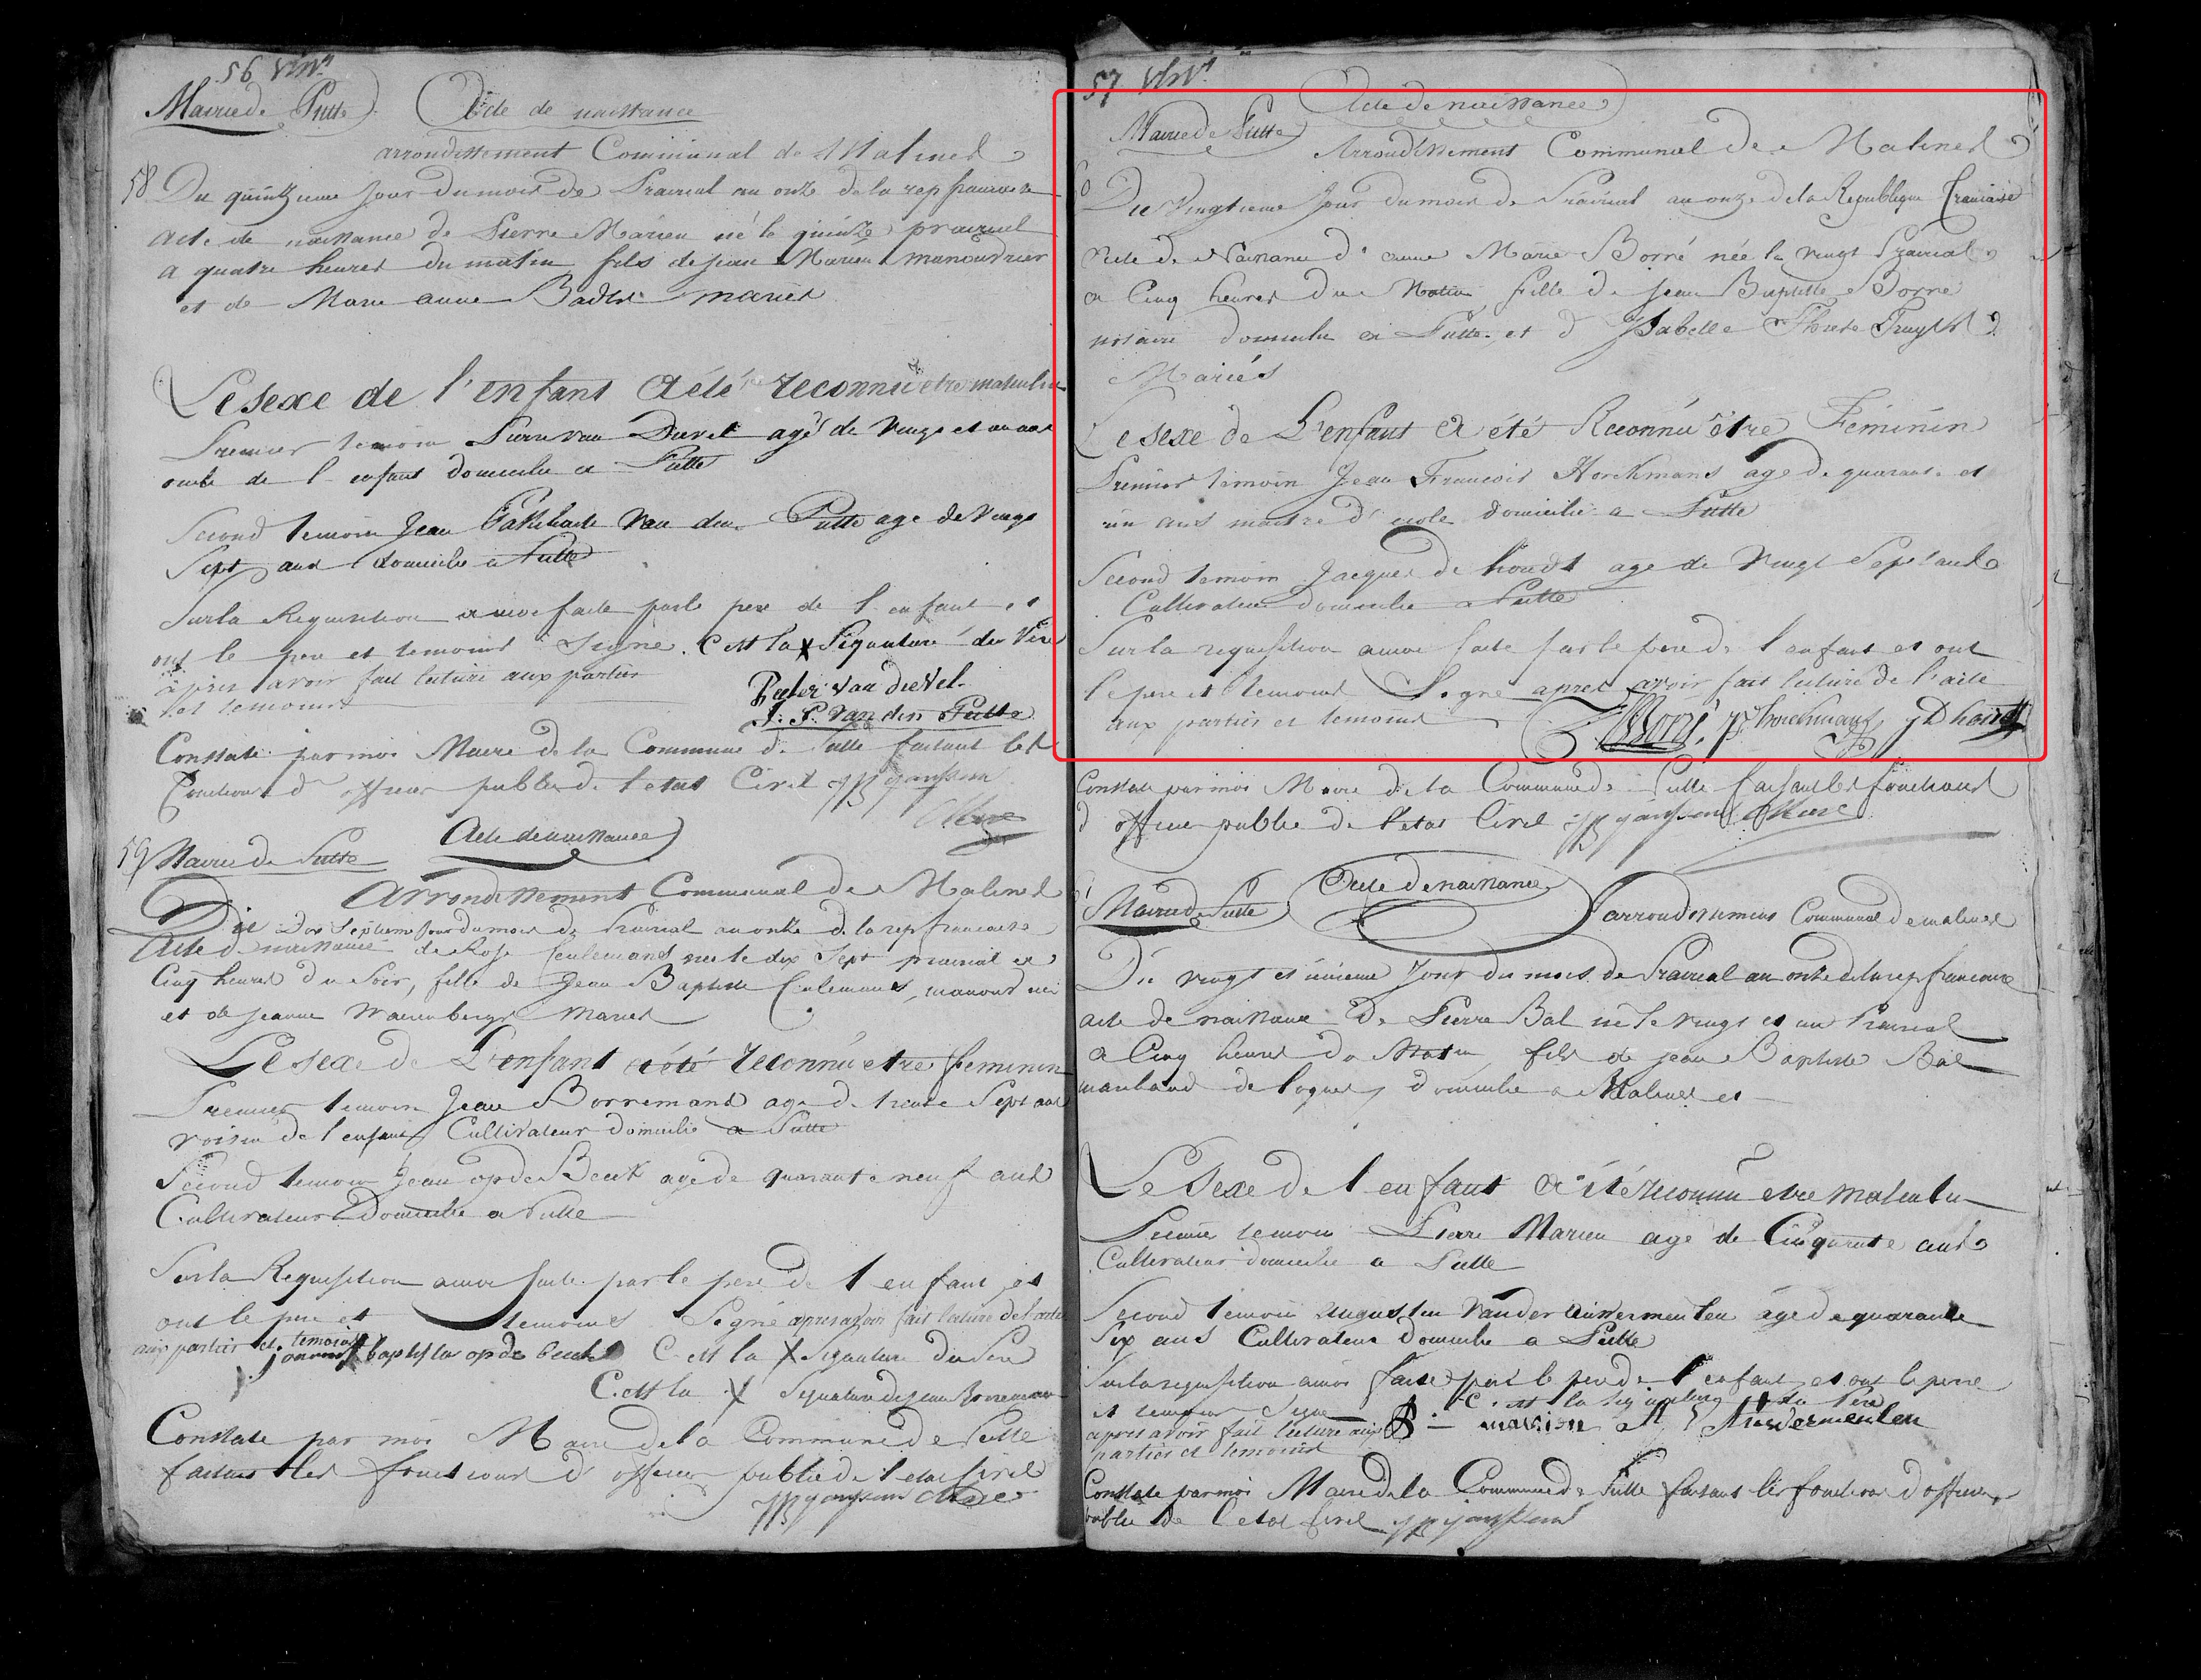 56
Mairie de Putte
Acte de naissance
arrondissement Communal de Malines
58 Du quinzieme Jour du mois de Prairial an onze de la rep francaise
Acte de naissance de Pierre Marien né le quinze prairial
a quatre heures du matin fils de jean Marien manouvrier
et de Marie anne Bades mariés
Le sexe de l'enfant a été reconnu etre masculin
Premier temoin Pierre van Duvel agé de vingt et un ans
oncle de l enfant domicilie a Putte
Second temoin Jean van den Putte age de vingt
Sept ans domicilie a Putte
Sur la Requisition a moi faite par le pere de l enfant et
ont le pere et temoins Signé. C est la X Signature du Pere
apres avoir fait lecture aux parties
et temoins
Peeter van duvel
J. P. van den Putte
Constaté par moi Maire de la Commune de Putte faisant les
Fonctions d officier public de l etat Civil
Maire
59 Mairie de Putte
Acte de naissance
Arrondissement Communal de Malines
Du Dix Septieme Jour du mois de Prairial an onze de la rep francaise
Acte de naissance de Rose Ceulemans née le dix Sept prairial a
Cinq heures du Soir, fille de Jean Baptiste Ceulemans, manouvrier
et de jeanne mariés
Le sexe de L'enfant a été reconnu etre feminin
Premier temoin Jean Borremans age de trente Sept ans
voisin de l enfant Cultivateur domicilié a Putte
Second temoin Jean op de Beeck age de quarante neuf ans
Cultivateur Domicilie a Putte
Sur la Requisition a moi faite par le pere de l enfant et
ont le pere et temoins Signé apres avoir fait lecture de l acte
aux parties et temoins
baptista op de beeck C est la X Signature du Pere
C. est la X Signature de jean Borremans
Constate par moi Maire de la Commune de Putte
faisant les fonctions d officier public de l etat Civil
Maire
57
Acte de naissance
Mairie de Putte
Arrondissement Communal de Malines
60 Du Vingtieme Jour du mois de Prairial an onze de la Republique Francaise
Acte de Naissance d' anne Marie Borré née le vingt Prairial
a Cinq heures du Matin, fille de Jean Baptiste Borré
notaire domicilie a Putte, et d' Isabelle Therese Truyts
Mariés
Le sexe de L'enfant a été Reconnu être Féminin
Premier temoin Jean Francois Horckmans age de quarante et
un ans maitre d' ecole domicilié a Putte
Second temoin Jacques de houdt age de vingt Sept ans
Cultivateur domicilie a Putte
Sur la requisition a moi faite par le pere de l enfant et ont
le pere et temoins Signé apres avoir fait lecture de l'acte
aux parties et temoins
Borré. horckmans
Constate par moi Maire de la Commune de Putte faisant les fonctions
d officier public de l etat Civil Maire
Mairie de Putte
Acte de naissance
arrondissement Communal de malines
Du vingt et unieme Jour du mois de Prairial an onze de la rep francaise
acte de naissance de Pierre Bal né le vingt et un Prairial
a Cinq heures du Matin, fils de jean Baptiste Bal
marchand de domicilie a Malines et
Le Sexe de l enfant a été reconnu etre masculin
Premier temoin Pierre Marien agé de Cinquante ans
Cultivateur domicilie a Putte
Second temoin augustin vander auwermeulen agé de quarante
Six ans Cultivateur domicilie a Putte
Sur la requisition a moi faite par le pere de l enfant et ont le pere
et temoins Signé C est la signature X du Père
apres avoir fait lecture aux
parties et temoins
Constate par moi Maire de la Commune de Putte faisant les fonctions d officier
public de l etat Civil